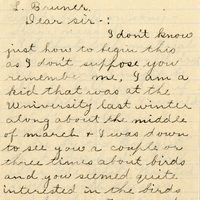 L. Bruner.
Dear sir-:
I don't know
just how to begin this
as I don't suppose you
remember me, I am a
kid that was at the
University last winter
along about the middle
of march & I was down
to see you a couple or
three times about birds
and you seemed quite
interested in the birds